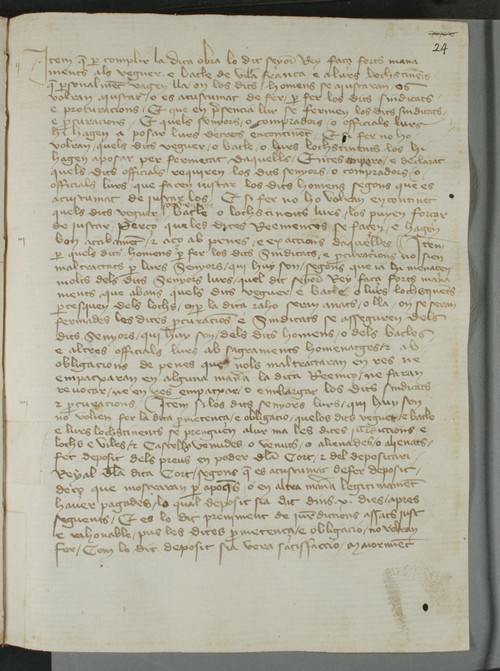 24
Item q̃ p complir la dita obra lo dit senyor Rey faça forts mana
ments als veguer e batle de vila franca e a lurs lochstinẽts
q̃ psonalmẽt vagen lla on los dits homens se aiustaran os
volran aiustar o es acustumat de fer p fer los dits sindicats
e procuracions E que en psencia lur se fermen los dits sindicats
e pcuracions E quels senyors o compradors o officials lurs
hi hagen a posar lurs decrets encontinet E si fer no ho
volran quels dits veguer o batle o lurs lochstinents los hi
hagen aposar per fermetat daquells Entes e declarat
quels dits officials requiren los dits senyors o compradors o
officials lurs que facen iustar los dits homens segons que es
acustumat de iustar los E si fer no ho volran encontinet
quels dits veguer batle o lochstinents lurs los puyen forçar
de iustar perço que les dites Reemences se facen e hagen
bon acabament E aço ab penes e exaccions daquelles Item
p quels dits homens p fer los dits Sindicats e pcuracions no sien
maltractats p lurs Senyors qui huy son segons que ia hi menacen
molts dels dits Senyors lurs quel dit senyor Rey faça forts mana
ments que abans quels dits veguer e batle o lurs lochstinents
partesquen dels lochs on p la dita raho seran anats o lla on se seran
fermades les dites pcuracios e Sindicats se asseguren dels
dits Senyors qui huy son dels dits homens o dels batles
e altres officials lurs ab sagraments homenatges E ab
obligacions de penes que nols maltractaran en res ne
empatxaran en alguna mana la dita Reemço ne faran
revocar ne en res empatxar o embargar los dits sindicats
E pcuracions Item si los dits senyors lurs qui huy son
no volien fer la dita pmetença e obligacio quelos dits veguer e batle
e lurs lochstinents se prenguen a lur ma les dites iurisdiccions e
lochs e viles E Castells venudes o venuts o alienades o alienats
fet deposit dels preus en poder dla Cort E del depositari
Reyal dla dita Cort segons q̃ es acustumat de fer deposit
daço que mostraran p apoques o en altra mana legitimament
haver pagades lo qual deposit sia dit dins x dies apres
seguents E es lo dit preniment de iurediccions assats just
e rahonable pus les dites pmetença e obligacio no volran
fer Com lo dit deposit sia vera satisfaccio maiorment